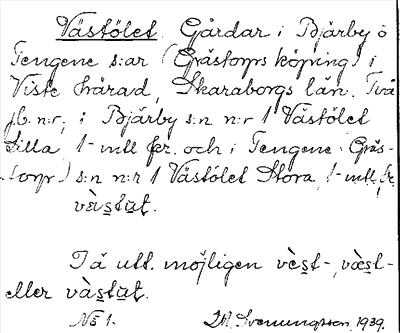 Västölet. Gårdar i Bjärby o
Tengene s:ar (Grästorps köping) i
Viste härad, Skaraborgs län. Två
jb. n:r, i Bjärby s:n n:r 1 Västölet
Lilla 1 mtl fr. och i Tengene (Gräs-
torps) s:n n:r 1 Västölet Stora, 1 mtl, fr.
vàstut.
I ä utt. möjligen vèst-, væst-
eller vàstut.
No 1. Svenungsson, 1939.